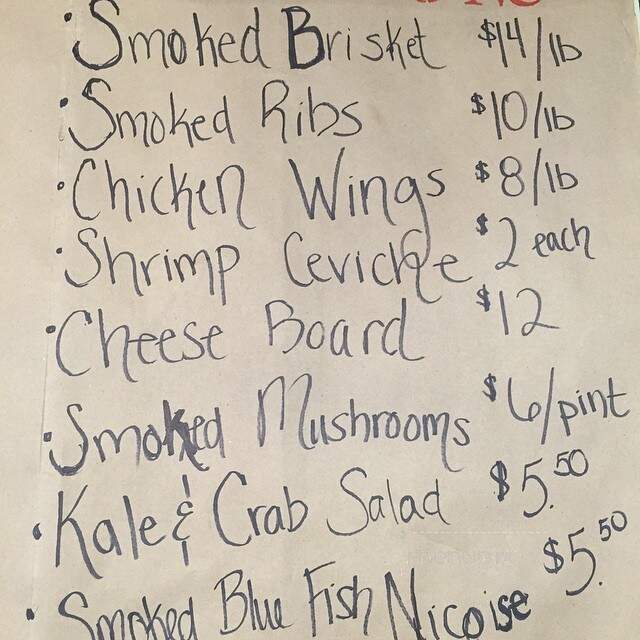 · Smoked Brisket $14/lb
· Smoked Ribs $10/lb
· Chicken Wings $8/lb
· Shrimp Ceviche $2 each
· Cheese Board $12
· Smoked Mushrooms $6/pint
· Kale & Crab Salad $5.50
· Smoked Blue Fish Nicoise $5.50